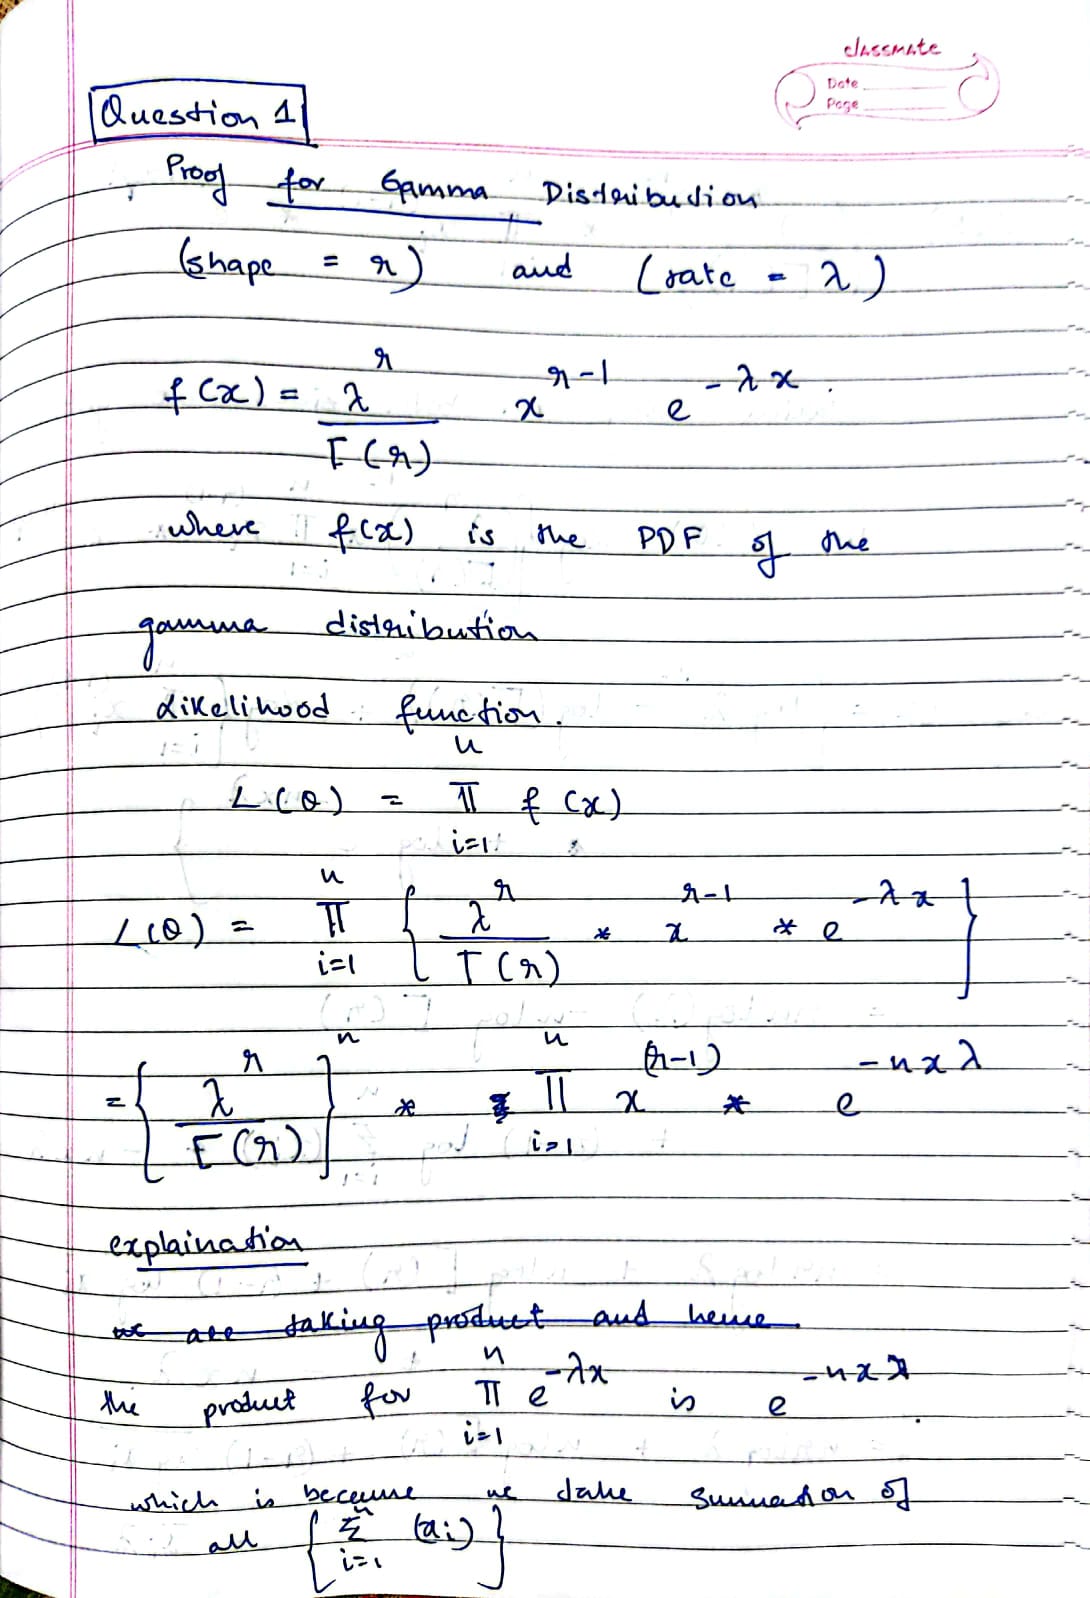 classmate
Date
Page
Question 1
Proof for Gamma Distribution
(shape = r) and (rate = λ)
f(x) = λ^r / Γ(r) x^(r-1) e^(-λx).
where f(x) is the PDF of the
gamma distribution
Likelihood function.
L(θ) = ∏_{i=1}^{n} f(x)
L(θ) = ∏_{i=1}^{n} { λ^r / Γ(r) * x^(r-1) * e^(-λx) }
= { λ^r / Γ(r) }^n * ∏_{i=1}^{n} x^(r-1) * e^(-nxλ)
explaination
we are taking product and hence
the product for ∏_{i=1}^{n} e^(-λx) is e^(-nxλ).
which is because we take summation of
all { Σ_{i=1}^{n} (xi) }